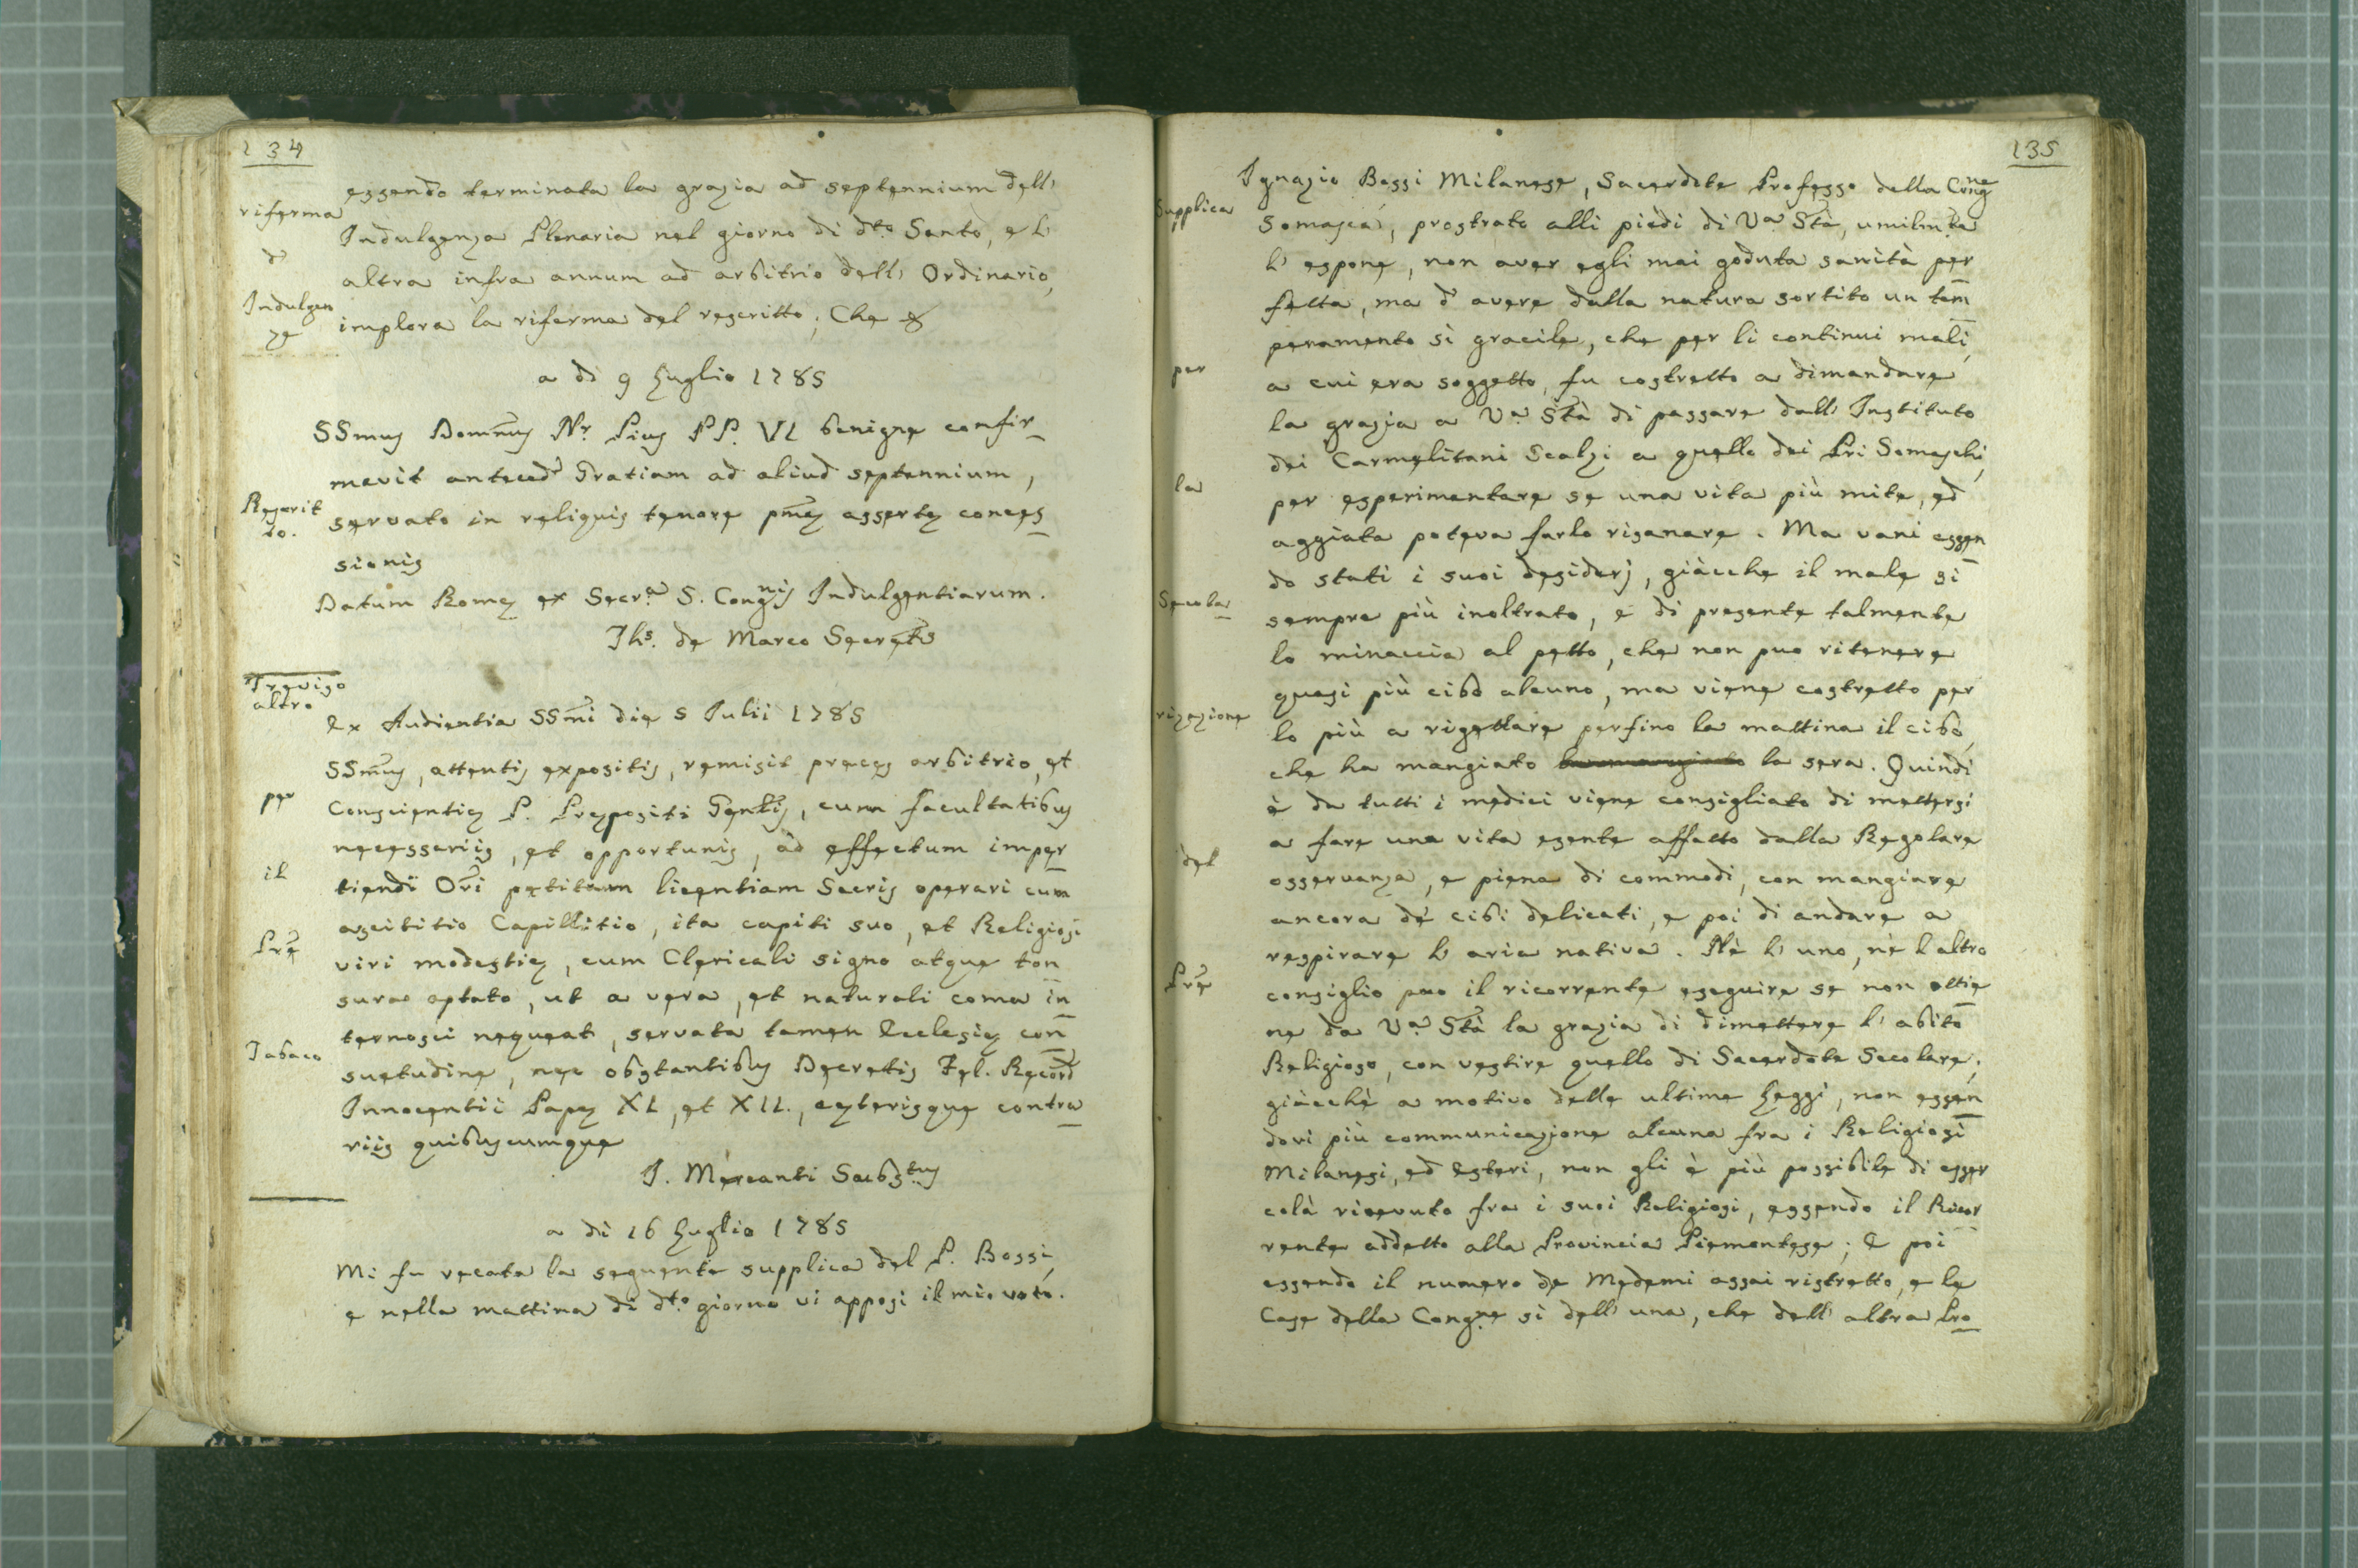 134
essendo terminata la grazia ad septennium dell'
riferma
Indulgenza Plenaria nel giorno di dto Santo, e l'
d'
altra infra annum ad arbitrio dell' Ordinario,
Indulgen
implora la riferma del rescritto; Che &
ze
a dì 9 Luglio 1785
SSmus Domnus Nr. Pius PP. VI. benigne confir_
mavit anteced Gratiam ad aliud septennium,
Rescrit
servato in reliquis tenore pmæ assertæ conces_
to.
sionis
Datum Romæ ex Secra S. Congnis Indulgentiarum.
Jhs. de Marco Secrets
Treviso
altro
Ex Audientia SSmi die 5 Julii 1785
SSmus, attentis expositis, remisit preces arbitrio, et
per
Conscientiæ P. Præpositi Gentis, cum facultatibus
necessariis, et opportunis, ad effectum imper_
il
tiendi Ori petitam licentiam Sacris operari cum
ascititio Capillitio, ita capiti suo, et Religiosi
Pre
viri modestiæ, cum Clericali signo atque ton
surae aptato, ut a vera, et naturali coma in_
ternosci nequeat, servata tamen Ecclesiæ con_
Tabaco
suetudine, nec obstantibus Decretis Fel. Record
Innocentii Papæ XI., et XII., cæterisque contra_
riis quibuscumque
J. Mercanti Substus
a dì 16 Luglio 1785
Mi fu recata la seguente supplica del P. Bossi,
e nella mattina di dto giorno vi apposi il mio voto.
135
Ignazio Bossi Milanese, Sacerdote Professo della Congne
Supplica
Somasca, prostrato alli piedi di Va Stà, umilmte
l' espone, non aver egli mai goduta sanità per
fetta, ma d' avere dalla natura sortito un tem_
peramento sì gracile, che per li continui mali,
per
a cui era soggetto, fu costretto a dimandare
la grazia a Va Stà di passare dall' Instituto
dei Carmelitani Scalzi a quello dei Pri Somaschi,
la
per esperimentare se una vita più mite, ed
aggiata poteva farlo risanare. Ma vani essen_
do stati i suoi desiderj, giacche il male si
Secola_
sempre più inoltrato, e di presente talmente
lo minaccia al petto, che non puo ritenere
quasi più cibo alcuno, ma viene costretto per
rizazione
lo più a rigettare perfino la mattina il cibo,
che ha mangiato la sera. Quindi
è da tutti i medici viene consigliato di mettersi
a fare una vita esente affatto dalla Regolare
del
osservanza, e piena di commodi, con mangiare
ancora de cibi delicati, e poi di andare a
respirare l' aria nativa. Nè l' uno, nè l altro
Pre
consiglio puo il ricorrente eseguire se non ottie_
ne da Va Stà la grazia di dimettere l' abito
Religioso, con vestire quello di Sacerdote Secolare;
giacchè a motivo delle ultime Leggi, non essen_
dovi più communicazione alcuna fra i Religiosi
Milanesi, ed Esteri, non gli è più possibile di esser
colà ricevuto fra i suoi Religiosi, essendo il Ricor_
rente addetto alla Provincia Piemontese; E poi
essendo il numero de Medemi assai ristretto, e le
Case della Congne sì dell' una, che dell' altra Pro_